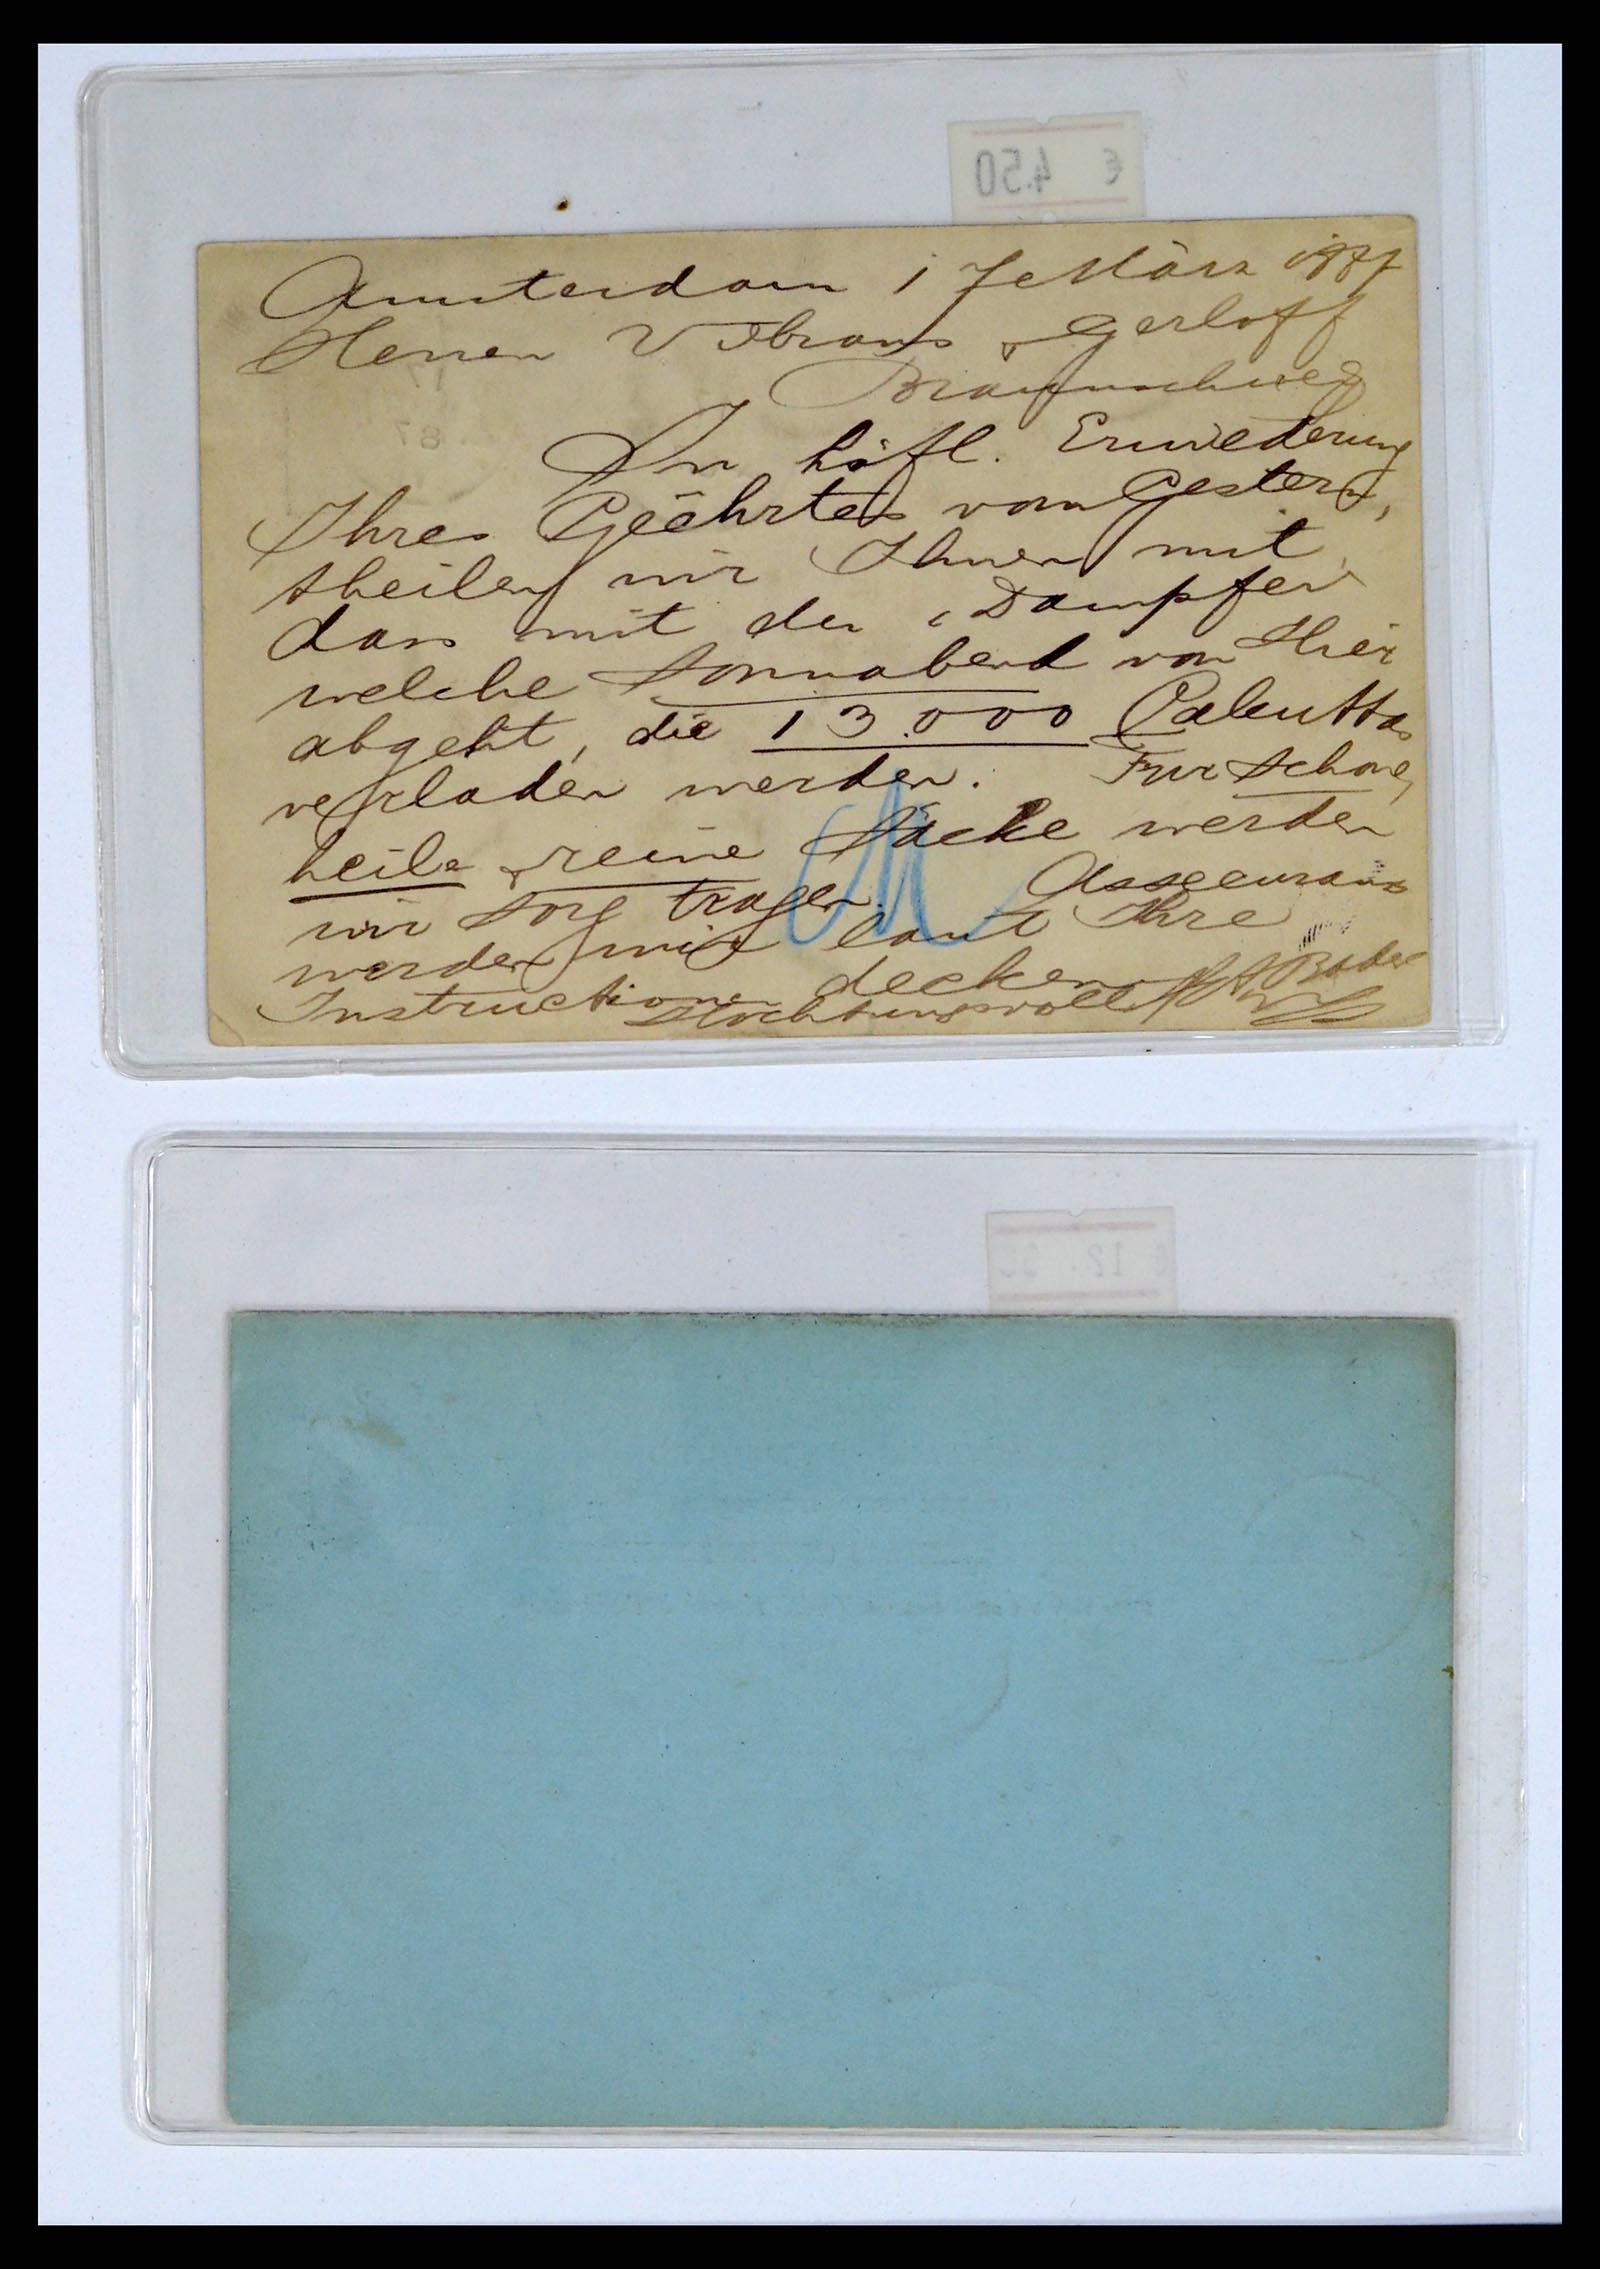 € 4.50
Amsterdam 17 März 1887
Herren Vibrans & Gerloff
Braunschweig
In höfl. Erwiederung
Ihres Geëhrtes vom Gestern,
theilen wir Ihnen mit,
dass mit der Dampfer
welche Sonnabend von Hier
abgeht, die 13.000 Calcuttas
verladen werden. Für schone,
heile & reine Säcke werden
wir Sorg tragen. Assecuranz
werden wir laut Ihre
Instructionen decken
Achtungsvoll
€ 12.